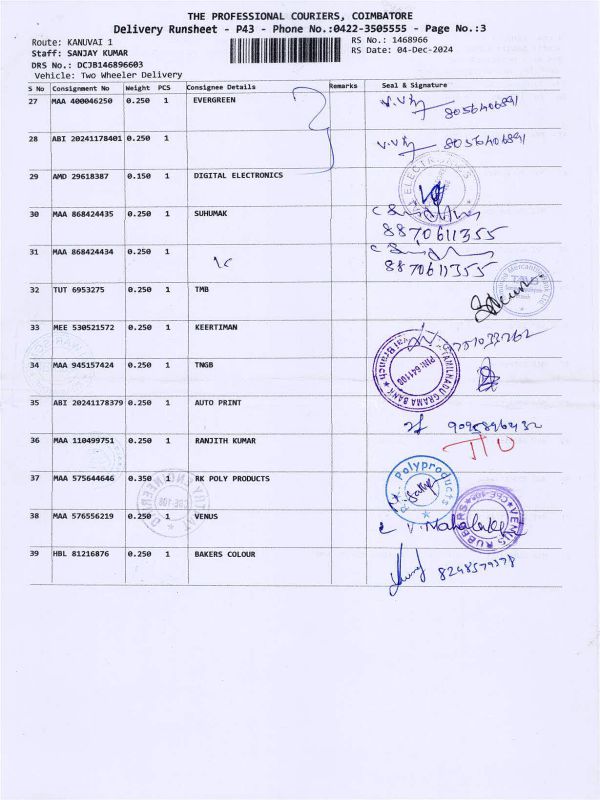 THE PROFESSIONAL COURIERS, COIMBATORE
Delivery Runsheet - P43 - Phone No.:0422-3505555 - Page No.:3
Route: KANUVAI 1
RS No.: 1468966
Staff: SANJAY KUMAR
RS Date: 04-Dec-2024
DRS No.: DCJB146896603
Vehicle: Two Wheeler Delivery
S No Consignment No Weight PCS Consignee Details Remarks Seal & Signature
27 MAA 400046250 0.250 1 EVERGREEN
8056406891
28 ABI 20241178401 0.250 1
8056406891
29 AMD 29618387 0.150 1 DIGITAL ELECTRONICS
ELECTRONICS
30 MAA 868424435 0.250 1 SUHUMAK
8870611355
31 MAA 868424434 0.250 1
8870611355
32 TUT 6953275 0.250 1 TMB
33 MEE 530521572 0.250 1 KEERTIMAN
34 MAA 945157424 0.250 1 TNGB
TAMILNADU GRAMA BANK
PIN: 641108
35 ABI 20241178379 0.250 1 AUTO PRINT
36 MAA 110499751 0.250 1 RANJITH KUMAR
37 MAA 575644646 0.350 1 RK POLY PRODUCTS
Polyproducts
38 MAA 576556219 0.250 1 VENUS
VENUS RUBBERS
39 HBL 81216876 0.250 1 BAKERS COLOUR
8248579378